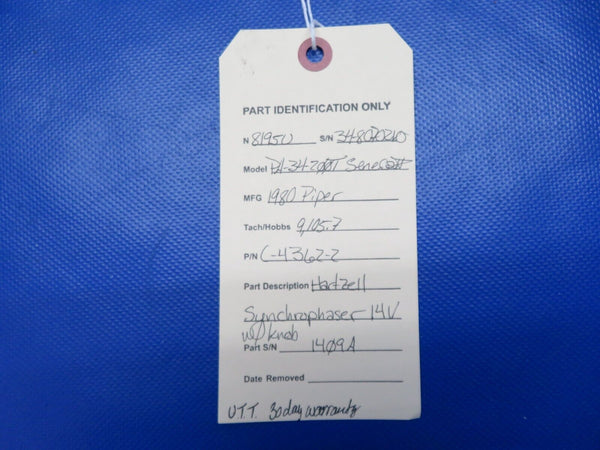 PART IDENTIFICATION ONLY
N 8195U S/N 34-8070210
Model PA-34-200T Seneca II
MFG 1980 Piper
Tach/Hobbs 9,105.7
P/N C-4362-2
Part Description Hartzell
Synchrophaser 14V
w/ knob
Part S/N 1409A
Date Removed
U.T.T. 30 day warranty